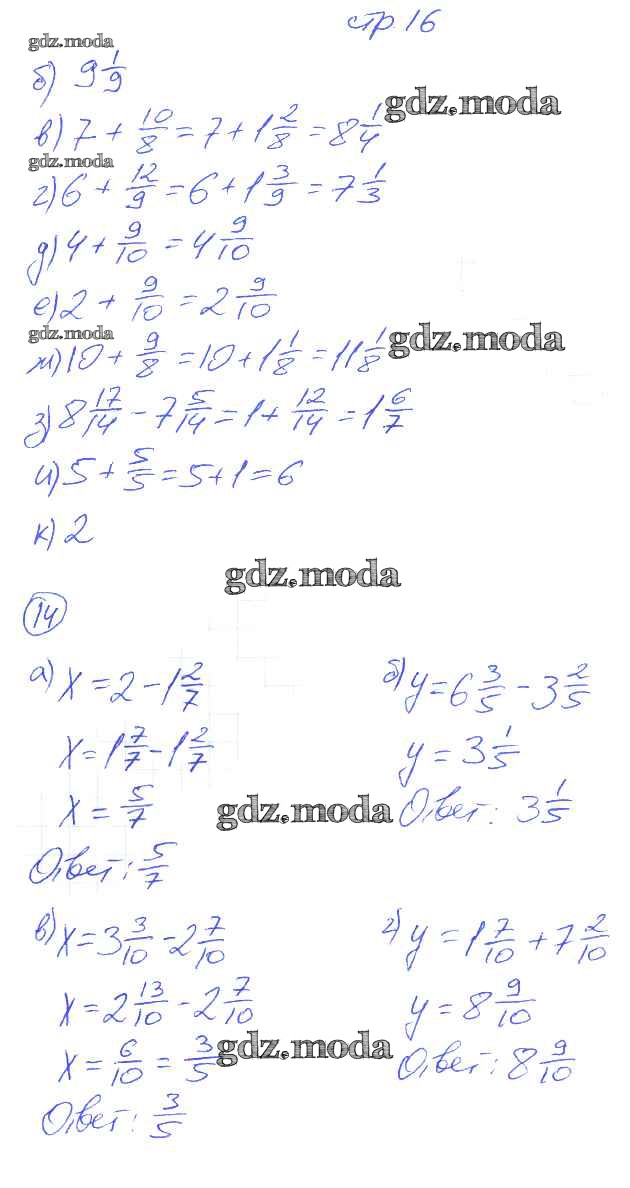 стр. 16
gdz.moda
б) 9 1/9
gdz.moda
в) 7 + 10/8 = 7 + 1 2/8 = 8 1/4
gdz.moda
г) 6 + 12/9 = 6 + 1 3/9 = 7 1/3
д) 4 + 9/10 = 4 9/10
е) 2 + 9/10 = 2 9/10
gdz.moda
gdz.moda
ж) 10 + 9/8 = 10 + 1 1/8 = 11 1/8
з) 8 17/14 - 7 5/14 = 1 + 12/14 = 1 6/7
и) 5 + 5/5 = 5 + 1 = 6
к) 2
gdz.moda
14
а) x = 2 - 1 2/7
x = 1 7/7 - 1 2/7
x = 5/7
gdz.moda
Ответ: 5/7
б) y = 6 3/5 - 3 2/5
y = 3 1/5
Ответ: 3 1/5
в) x = 3 3/10 - 2 7/10
x = 2 13/10 - 2 7/10
x = 6/10 = 3/5
gdz.moda
Ответ: 3/5
г) y = 1 7/10 + 7 2/10
y = 8 9/10
Ответ: 8 9/10